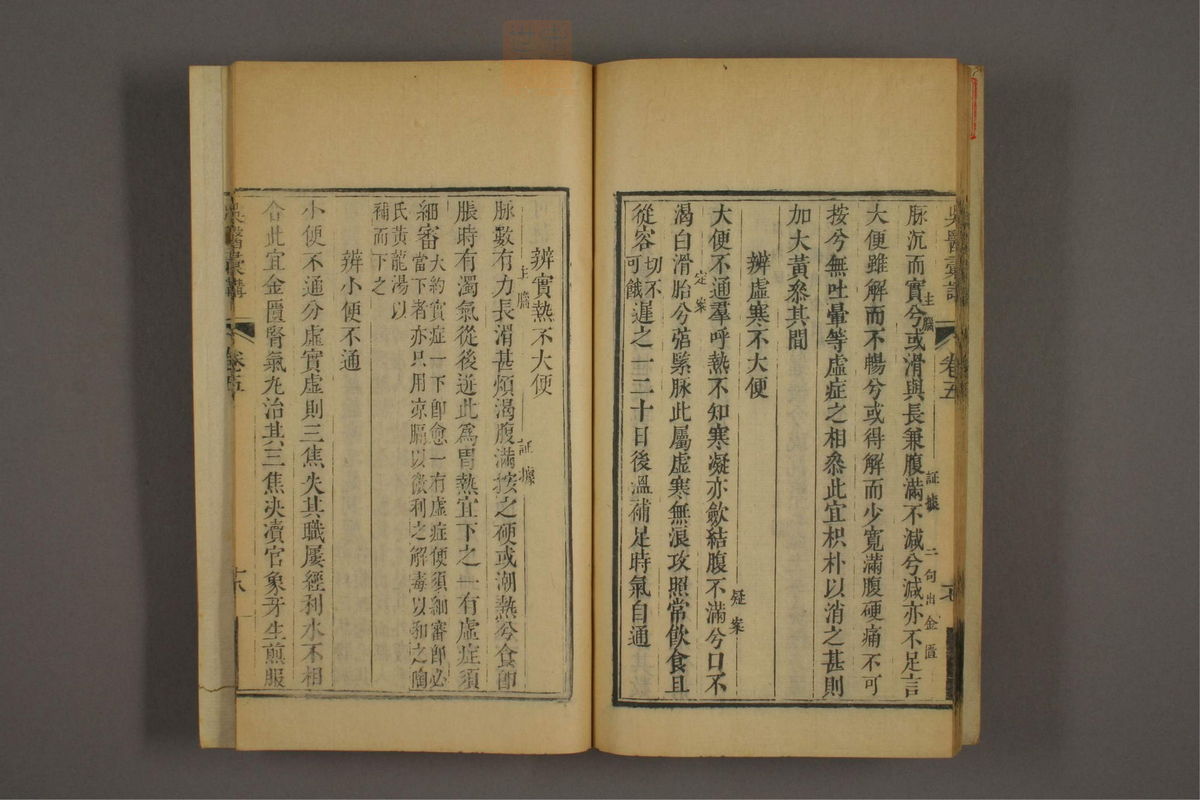 吳醫彙講
卷五
主腦
証據
二句出金匱
脉沉而實兮或滑與長兼腹滿不減兮減亦不足言
大便雖解而不暢兮或得解而少寬滿腹硬痛不可
按兮無吐暈等虛症之相叅此宜枳朴以消之甚則
加大黃叅其間
辨虛寒不大便
疑案
大便不通羣呼熱不知寒凝亦歛結腹不滿兮口不
定案
渴白滑胎兮弱緊脉此屬虛寒無浪攻照常飲食且
從容切不可餓遲之一二十日後溫補足時氣自通
辨實熱不大便
主腦
証據
脉數有力長滑甚煩渴腹滿按之硬或潮熱兮食卽
脹時有濁氣從後迸此爲胃熱宜下之一有虛症須
細審大約實症一下卽愈一有虛症便須細審卽必
當下者亦只用凉膈以微利之解毒以和之陶
氏黃龍湯以
補而下之
辨小便不通
小便不通分虛實虛則三焦失其職屢經利水不相
合此宜金匱腎氣丸治其三焦決瀆官象牙生煎服
吳醫彙講
卷五
十八